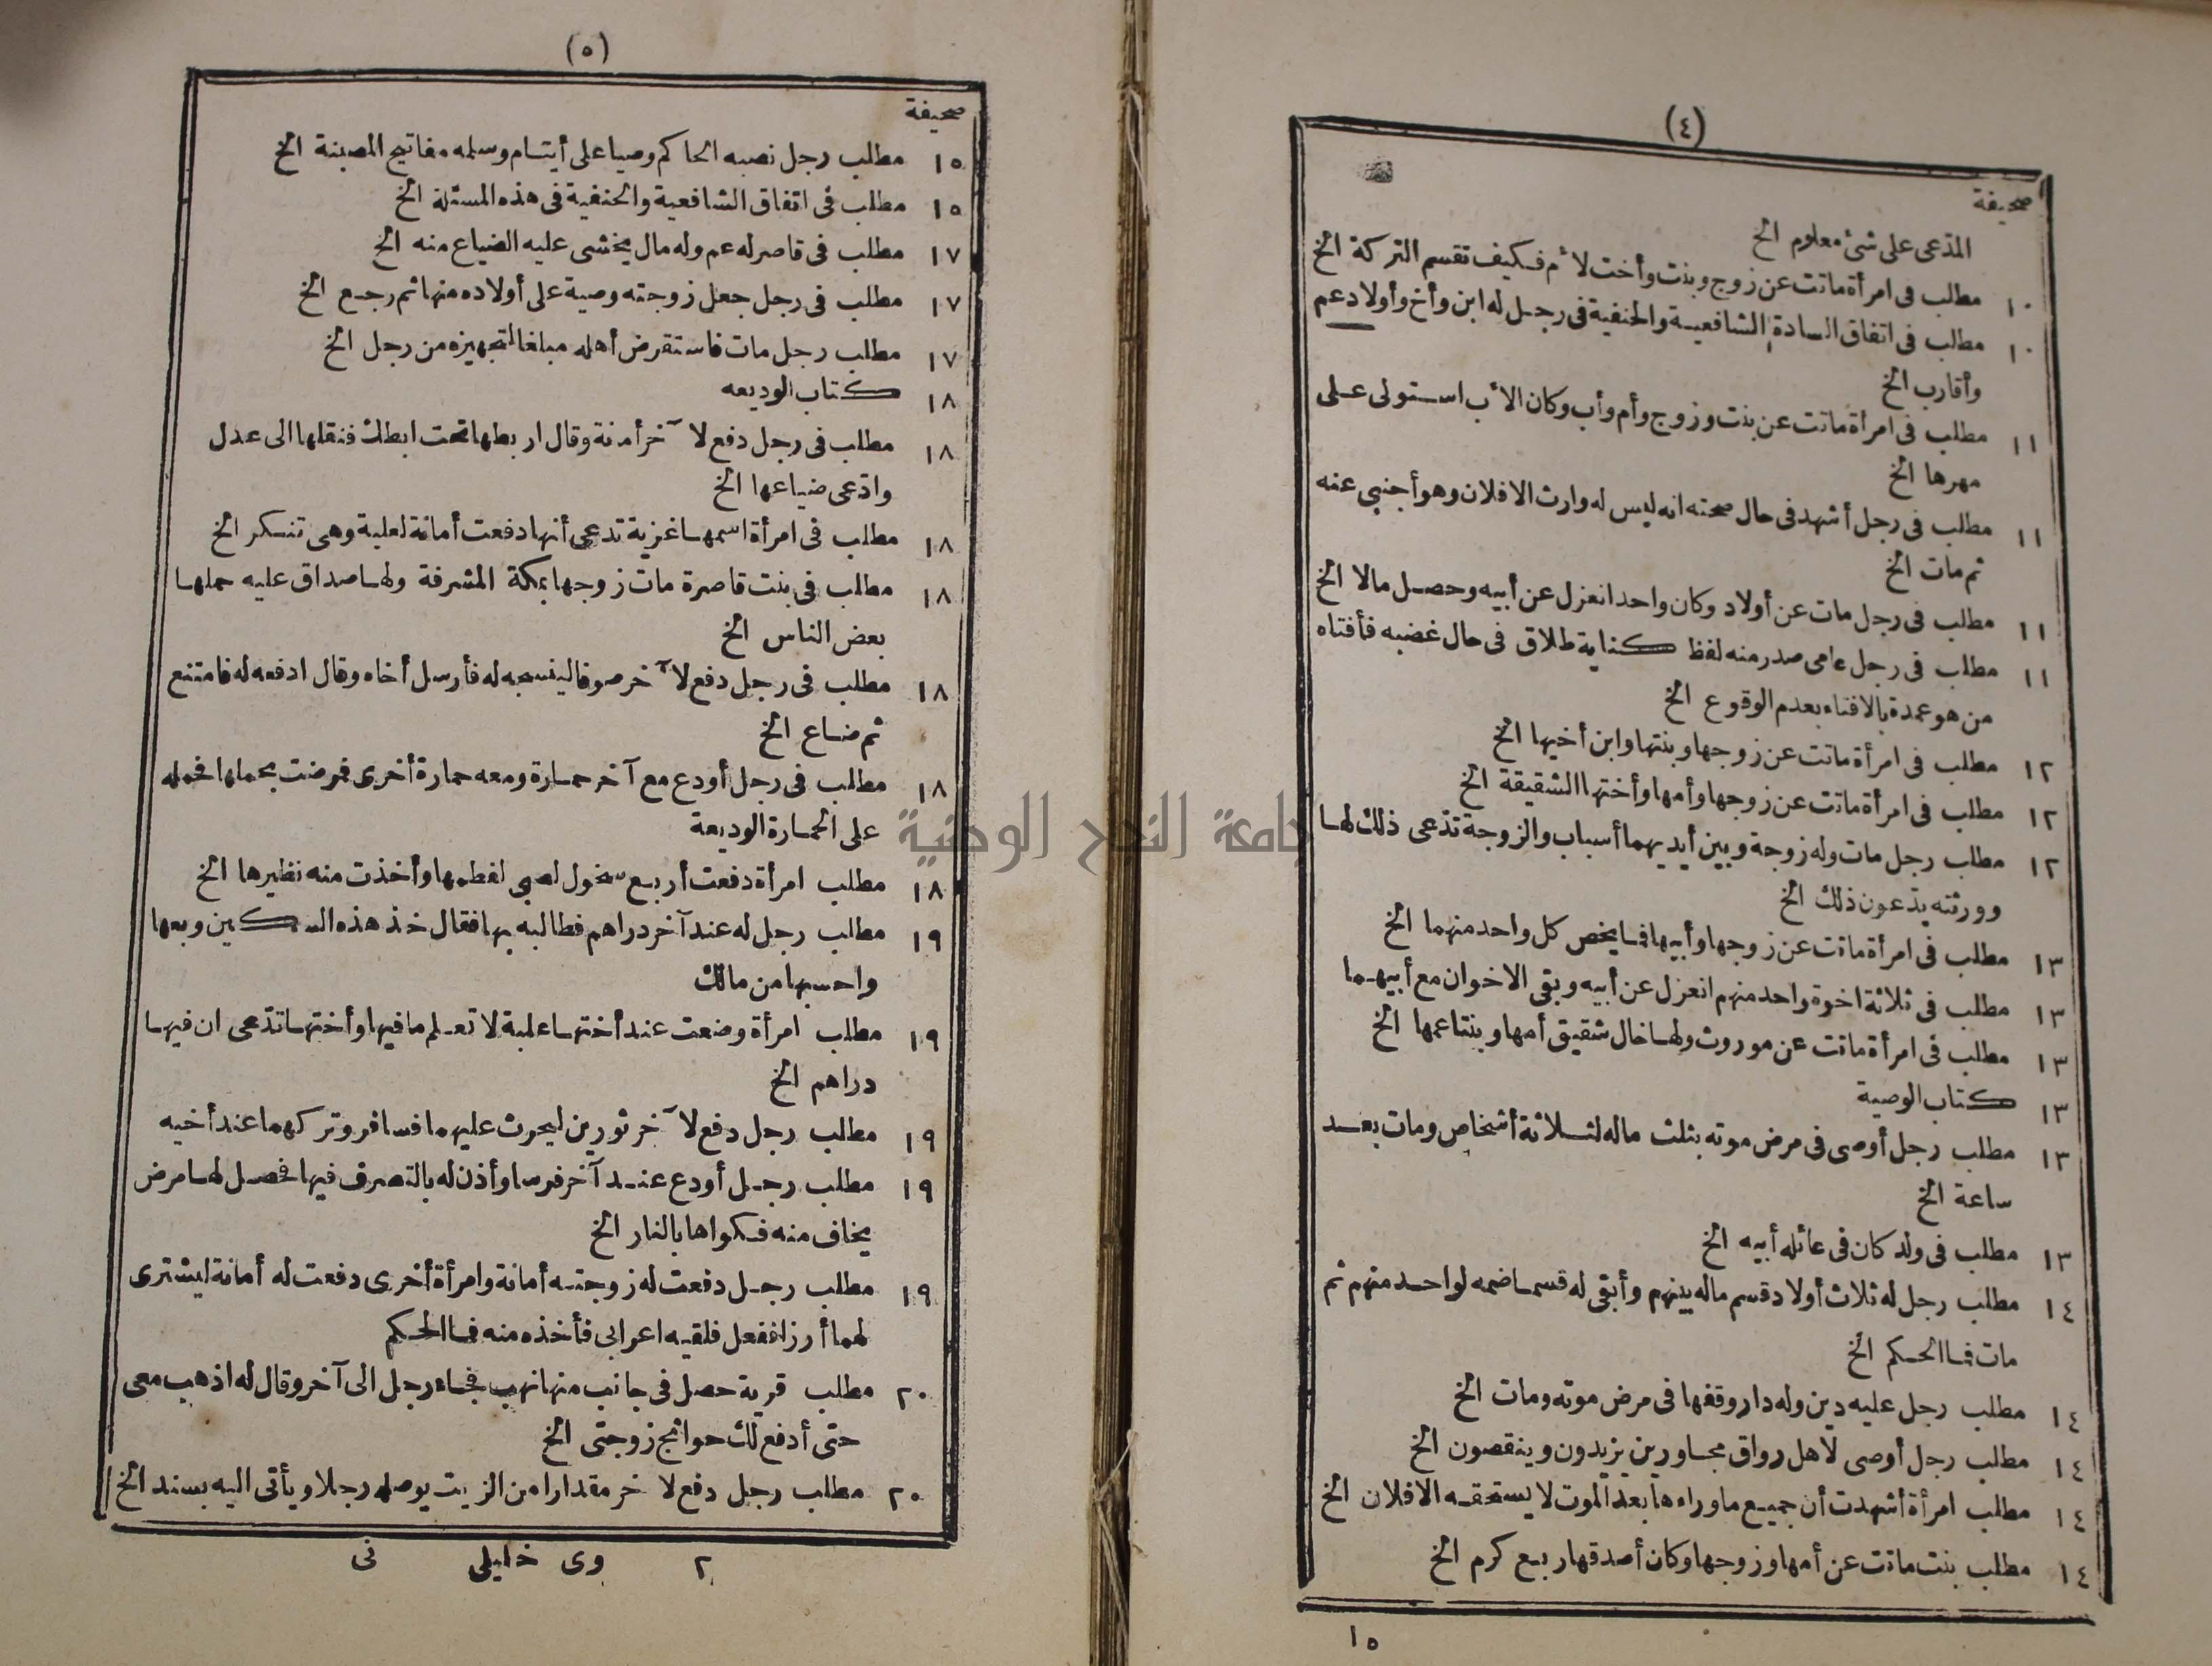 (٤)
صحيفة
المدّعى على شئ معلوم الخ
١٠ مطلب فى امرأة ماتت عن زوج وبنت وأخت لأم فكيف تقسم التركة الخ
١٠ مطلب فى اتفاق السادة الشافعية والحنفية فى رجل له ابن وأخ وأولاد عم
وأقارب الخ
١١ مطلب فى امرأة ماتت عن بنت وزوج وأم وأب وكان الأب استولى على
مهرها الخ
١١ مطلب فى رجل أشهد فى حال صحته انه ليس له وارث الا فلان وهو أجنبي عنه
ثم مات الخ
١١ مطلب فى رجل مات عن أولاد وكان واحد انعزل عن أبيه وحصل مالا الخ
١١ مطلب فى رجل عامى صدر منه لفظ كناية طلاق فى حال غضبه فأفتاه
من هو عمدة بالافتاء بعدم الوقوع الخ
١٢ مطلب فى امرأة ماتت عن زوجها وبنتها وابن أخيها الخ
١٢ مطلب فى امرأة ماتت عن زوجها وأمها وأختها الشقيقة الخ
١٢ مطلب رجل مات وله زوجة وبين أيديهما أسباب والزوجة تدّعى ذلك لها
وورثته يدّعون ذلك الخ
١٣ مطلب فى امرأة ماتت عن زوجها وأبيها فما يخص كل واحد منهما الخ
١٣ مطلب فى ثلاثة اخوة واحد منهم انعزل عن أبيه وبقى الاخوان مع أبيهما
١٣ مطلب فى امرأة ماتت عن موروث ولها خال شقيق أمها وبنتا عمها الخ
١٣ كتاب الوصية
١٣ مطلب رجل أوصى فى مرض موته بثلث ماله لثلاثة أشخاص ومات بعد
ساعة الخ
١٣ مطلب فى ولد كان فى عائله أبيه الخ
١٤ مطلب رجل له ثلاث أولاد قسم ماله بينهم وأبقى له قسما ضمه لواحد منهم ثم
مات فما الحكم الخ
١٤ مطلب رجل عليه دين وله دار وقفها فى مرض موته ومات الخ
١٤ مطلب رجل أوصى لأهل رواق مجاورين يزيدون وينقصون الخ
١٤ مطلب امرأة أشهدت أن جميع ما وراءها بعد الموت لا يستحقه الا فلان الخ
١٤ مطلب بنت ماتت عن أمها وزوجها وكان أصدقها ربع كرم الخ
١٥
(٥)
صحيفة
١٥ مطلب رجل نصبه الحاكم وصيا على أيتام وسلمه مفاتيح المصبنة الخ
١٥ مطلب فى اتفاق الشافعية والحنفية فى هذه المسئلة الخ
١٧ مطلب فى قاصر له عم وله مال يخشى عليه الضياع منه الخ
١٧ مطلب فى رجل جعل زوجته وصية على أولاده منها ثم رجع الخ
١٧ مطلب رجل مات فاستقرض أهله مبلغا لتجهيزه من رجل الخ
١٨ كتاب الوديعه
١٨ مطلب فى رجل دفع لآخر أمنة وقال اربطها تحت ابطك فنقلها الى عدل
وادّعى ضياعها الخ
١٨ مطلب فى امرأة اسمها غزية تدعى أنها دفعت أمانة لعلية وهى تنكر الخ
١٨ مطلب فى بنت قاصرة مات زوجها بمكة المشرفة ولها صداق عليه حملها
بعض الناس الخ
١٨ مطلب فى رجل دفع لآخر صوفا لينسجه له فأرسل أخاه وقال ادفعه له فامتنع
ثم ضاع الخ
١٨ مطلب فى رجل أودع مع آخر حمارة ومعه حمارة أخرى فمرضت بحملها فحمله
على الحمارة الوديعة
١٨ مطلب امرأة دفعت أربع سخول لصبى لفطمها وأخذت منه نظيرها الخ
١٩ مطلب رجل له عند آخر دراهم فطالبه بها فقال خذ هذه السكين وبعها
واحسبها من مالك
١٩ مطلب امرأة وضعت عند أختها علبة لا تعلم ما فيها وأختها تدّعى ان فيها
دراهم الخ
١٩ مطلب رجل دفع لآخر ثورين ليحرث عليهما فسافر وتركهما عند أخيه
١٩ مطلب رجل أودع عند آخر فرسا وأذن له بالتصرف فيها فحصل لها مرض
يخاف منه فكواها بالنار الخ
١٩ مطلب رجل دفعت له زوجته أمانة وامرأة أخرى دفعت له أمانة ليشترى
لهما أرزا ففعل فلقيه اعرابى فأخذه منه فما الحكم
٢٠ مطلب قرية حصل فى جانب منها نهب فجاء رجل الى آخر وقال له اذهب معى
حتى أدفع لك حوائج زوجتى الخ
٢٠ مطلب رجل دفع لآخر مقدارا من الزيت يوصله رجلا ويأتى اليه بسند الخ
٢ وى خليلى نى
جامعة النجاح الوطنية